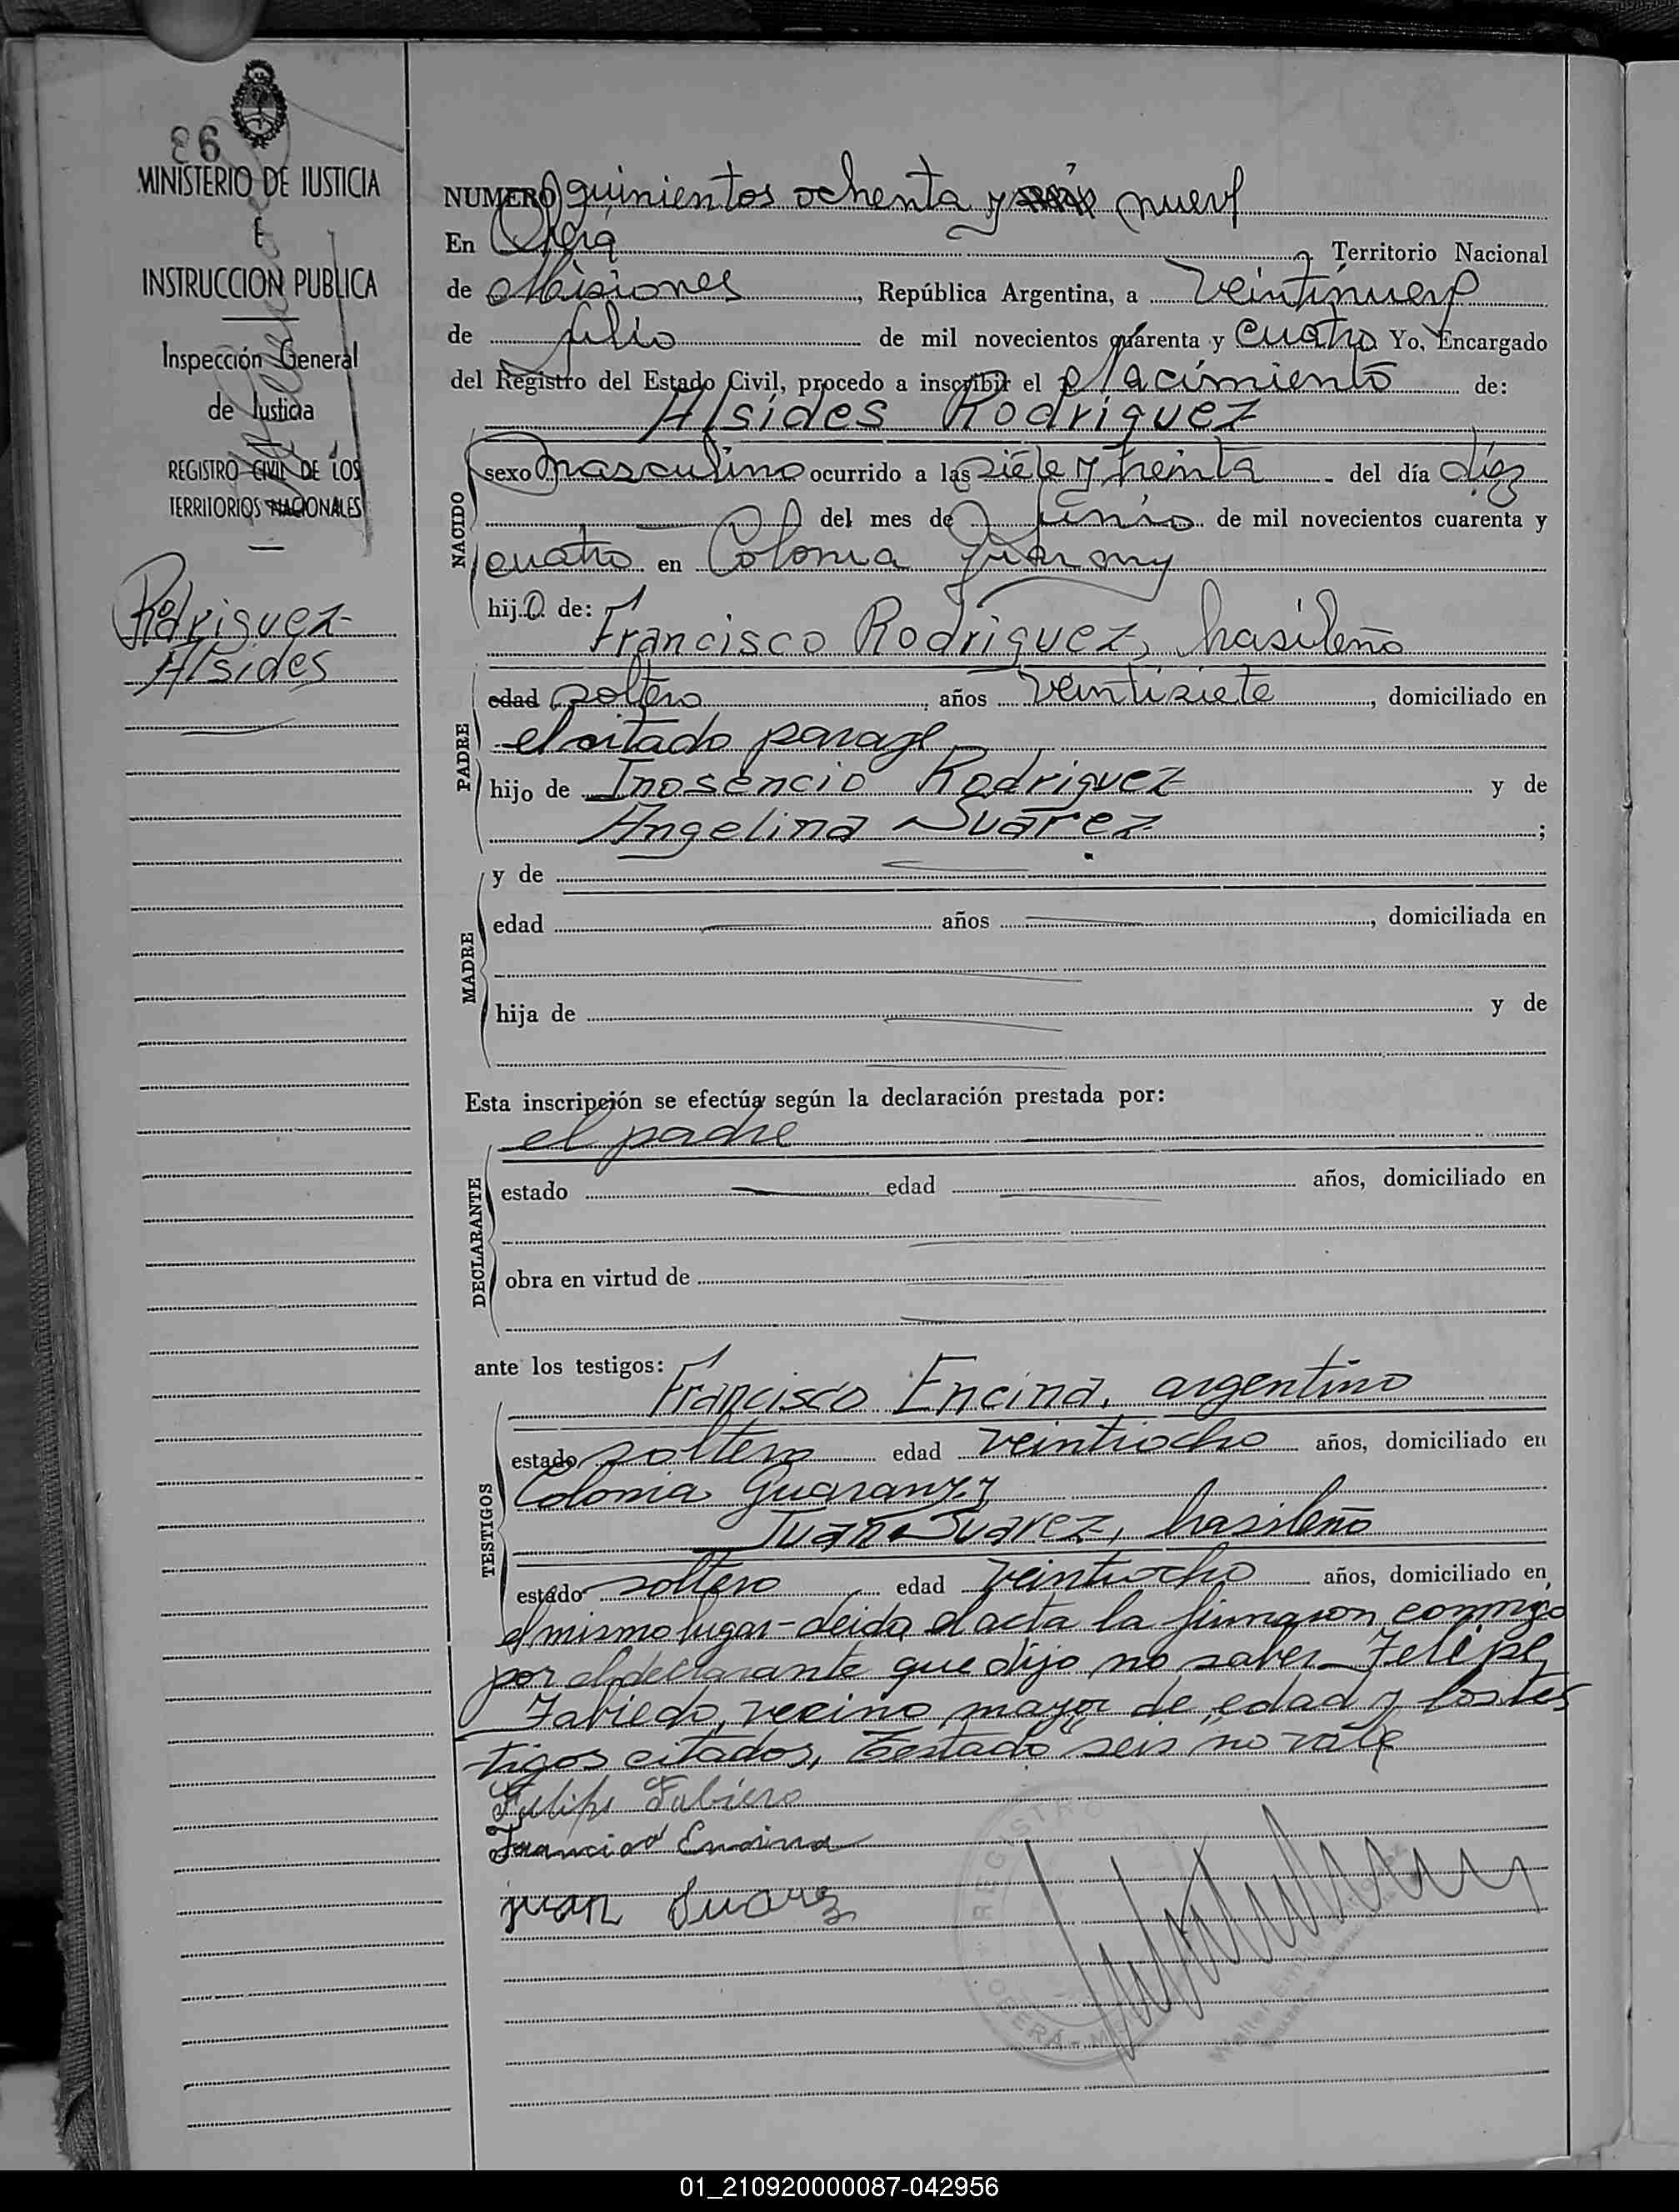 86
MINISTERIO DE JUSTICIA
E
INSTRUCCION PUBLICA
Inspección General
de Justicia
REGISTRO CIVIL DE LOS
TERRITORIOS NACIONALES
Rodriguez
Alsides
NUMERO quinientos ochenta y nueve
En Oberá Territorio Nacional
de Misiones, República Argentina, a veintinueve
de julio de mil novecientos cuarenta y cuatro Yo, Encargado
del Registro del Estado Civil, procedo a inscribir el nacimiento de:
Alsides Rodriguez
NACIDO
sexo masculino ocurrido a las siete y treinta del día diez
del mes de junio de mil novecientos cuarenta y
cuatro en Colonia Guarany
hijo de:
Francisco Rodriguez, brasileño
PADRE
edad soltero, años veintisiete, domiciliado en
el citado paraje
hijo de Inosencio Rodriguez y de
Angelina Suarez;
MADRE
y de
edad años, domiciliada en
hija de y de
Esta inscripción se efectúa según la declaración prestada por:
el padre
DECLARANTE
estado edad años, domiciliado en
obra en virtud de
ante los testigos:
Francisco Encina, argentino
TESTIGOS
estado soltero edad veintiocho años, domiciliado en
Colonia Guarany y
Juan Suarez, brasileño
estado soltero edad veintiocho años, domiciliado en
el mismo lugar - Leida el acta la firmaron conmigo
por el declarante que dijo no saber Felipe
Fabiedo, vecino mayor de edad y los tes
tigos citados, Testado "seis" no vale
Felipe Fabiero
Francisco Encina
juan Suarez
REGISTRO
OBERÁ - M
01_210920000087-042956